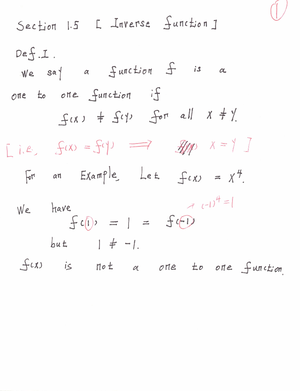 ①
Section 1.5 [ Inverse function ]
Def. I.
We say a function f is a
one to one function if
f(x) ≠ f(y) for all x ≠ y.
[ i.e. f(x) = f(y) ⟹ x = y ]
For an Example, Let f(x) = x⁴.
We have
(-1)⁴ = 1
f(1) = 1 = f(-1)
but 1 ≠ -1.
f(x) is not a one to one function.